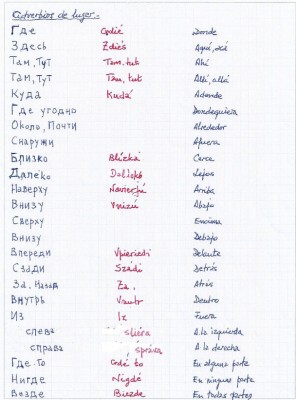 Adverbios de lugar.
Где Gdié Donde
Здесь Zdiés Aquí, acá
Там, Тут Tam, tut Ahí
Там, Тут Tam, tut Allí, allá
Куда Kudá Adonde
Где угодно Dondequiera
Около, Почти Alrededor
Снаружи Afuera
Близко Blízka Cerca
Далеко Lejos
Наверху Arriba
Внизу Vnizú Abajo
Сверху Encima
Внизу Debajo
Впереди Vperiedí Delante
Сзади Szádi Detrás
За, Назад Za, Atrás
Внутрь Vnutr Dentro
Из Iz Fuera
слева sliéva A la izquierda
справа správa A la derecha
Где-то Gdé to En alguna parte
Нигде Nigdé En ninguna parte
Везде Viezde En todas partes